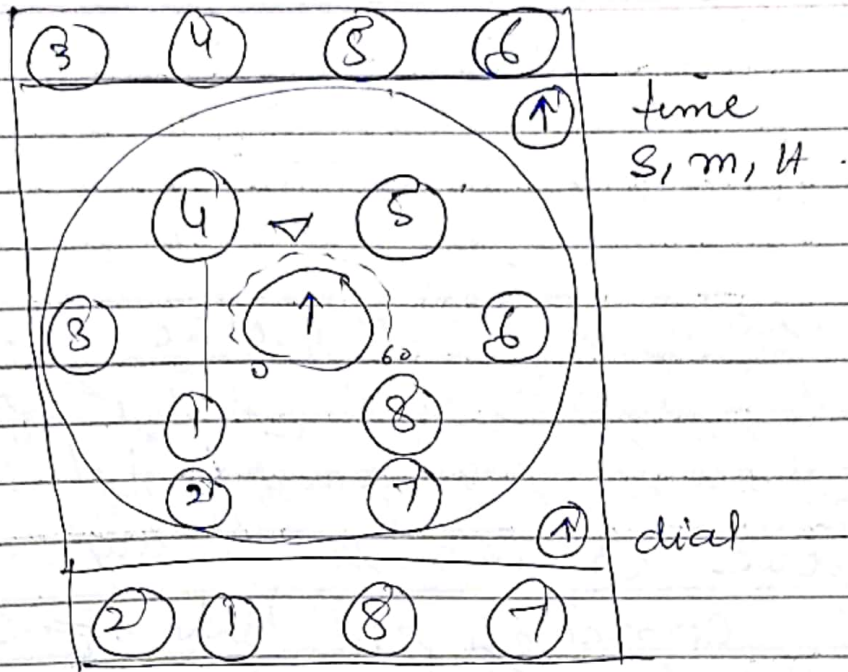 3 4 5 6
↑ time
S, m, H
4 5
3 ↑ 6
0 60
1 8
2 7
↑ dial
2 1 8 7